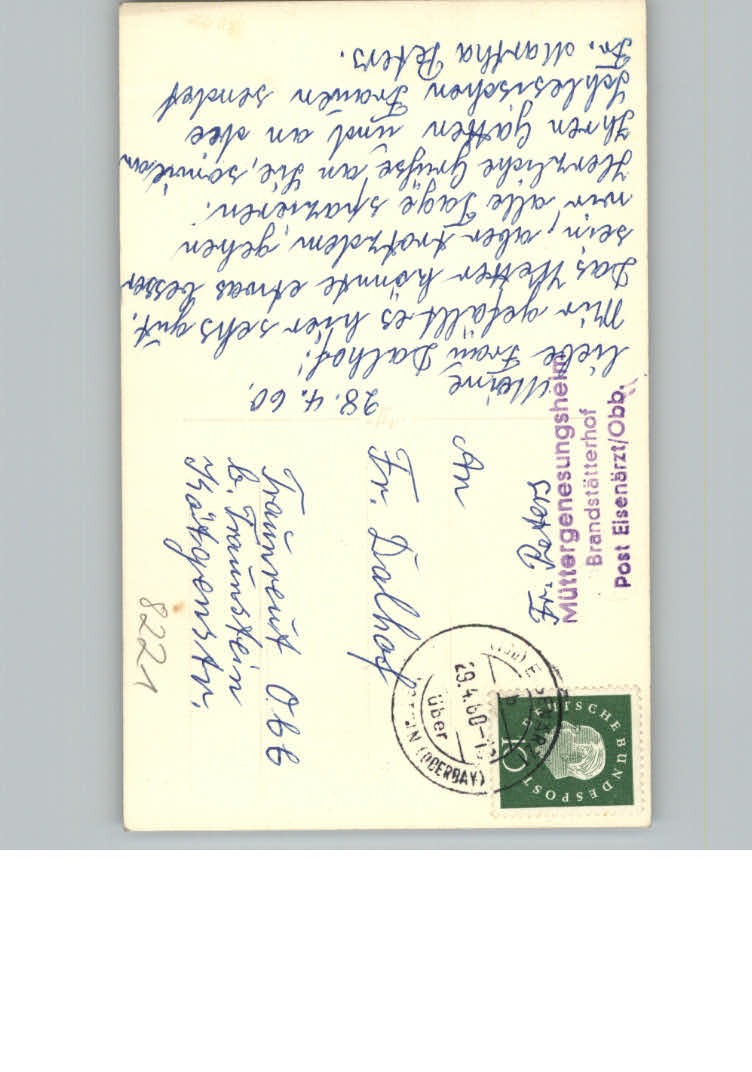 28.4.60.
Meine
liebe Frau Dalhof!
Mir gefällt es hier sehr gut.
Das Wetter könnte etwas besser
sein, aber trotzdem, gehen
wir alle Tage spazieren.
Herzliche Grüße, an Sie, sowie an
Ihren Gatten und an die
Schlesischen Frauen sendet
Fr. Martha Peters.
Fr. Peters
Müttergenesungsheim
Brandstätterhof
Post Eisenärzt/Obb.
An
Fr. Dalhof
Traunreut Obb
b. Traunstein
8221
29.4.60
über
(OBERBAY)
DEUTSCHE BUNDESPOST